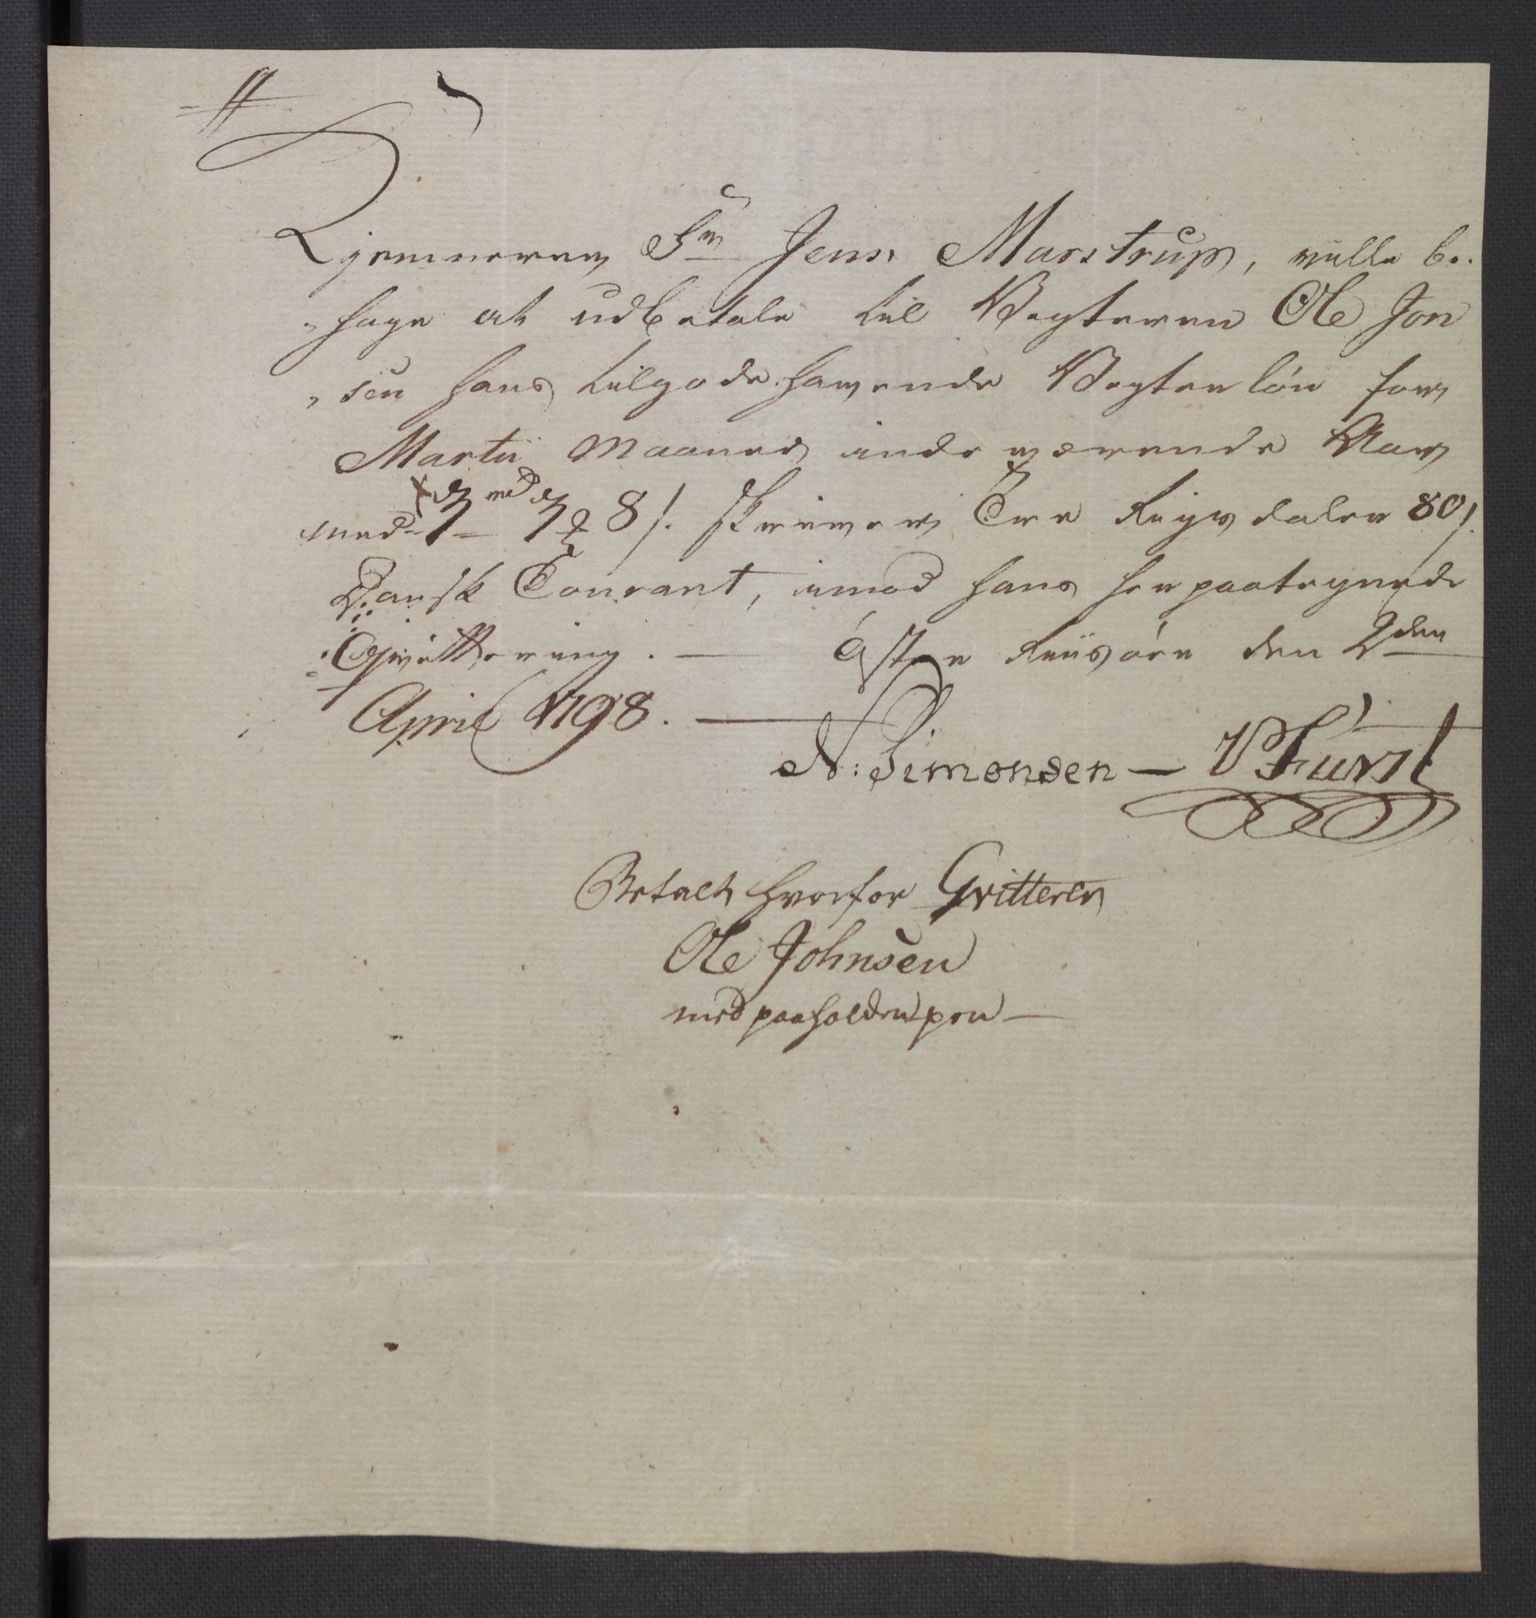 Kjemneren Hr Jens Marstrup, ville be-
hage at udbetale til Vegteren Ole Jon
sen hans tilgodehavende Vegterlön for
Martii Maaned indeværende Aar
med 8 s. skriver Een Rigsdaler 80 s.
Dansk Courant, imod hans herpaategnede
Qvittering. — Öster Riisöer den 2den
April 1798. —
N: Simonsen — V Fürst
Betalt hvorfor Qvitterer
Ole Johnsen
med paaholden pen —